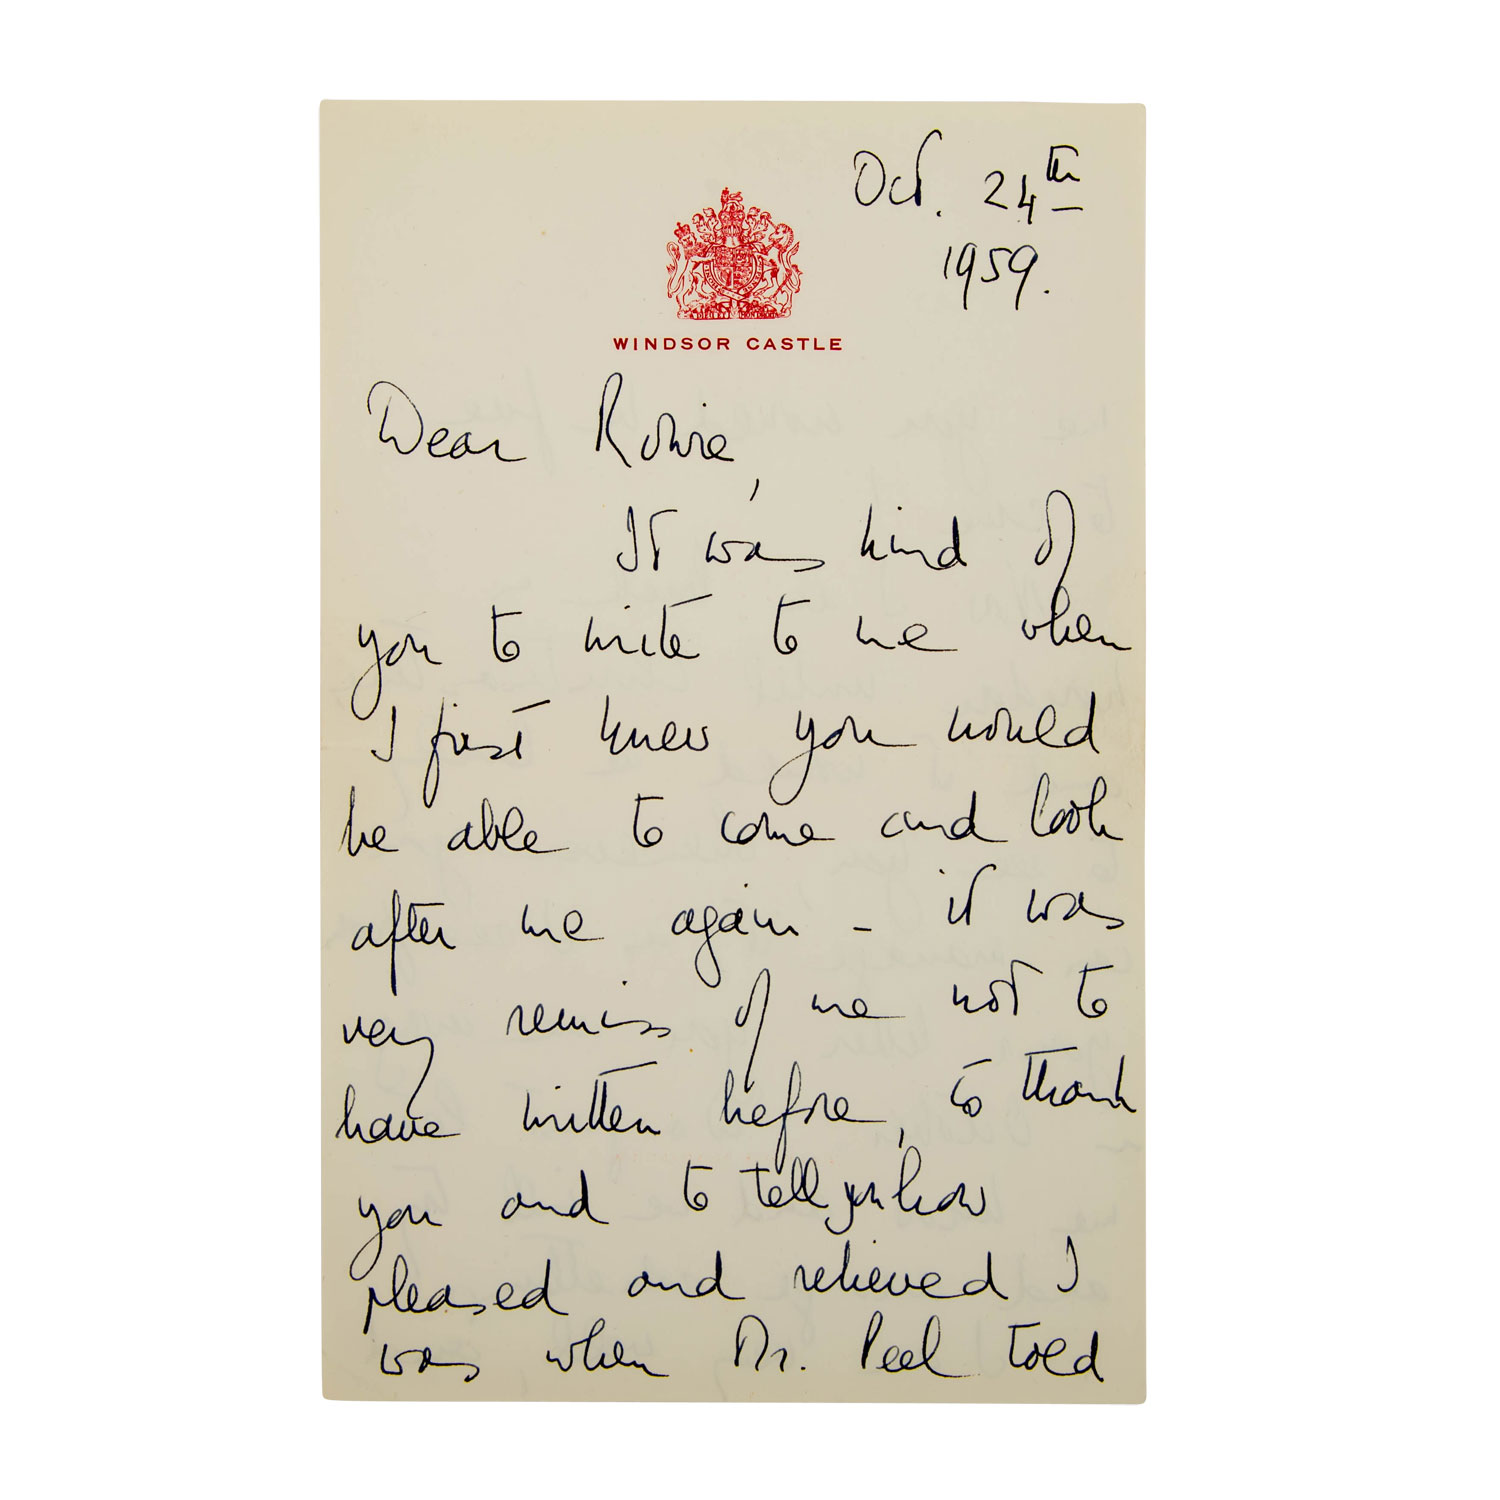 Oct. 24th
1959.
WINDSOR CASTLE
Dear Rowie,
It was kind of
you to write to me when
I first knew you would
be able to come and look
after me again - it was
very remiss of me not to
have written before, to thank
you and to tell you how
pleased and relieved I
was when Mr. Peel told